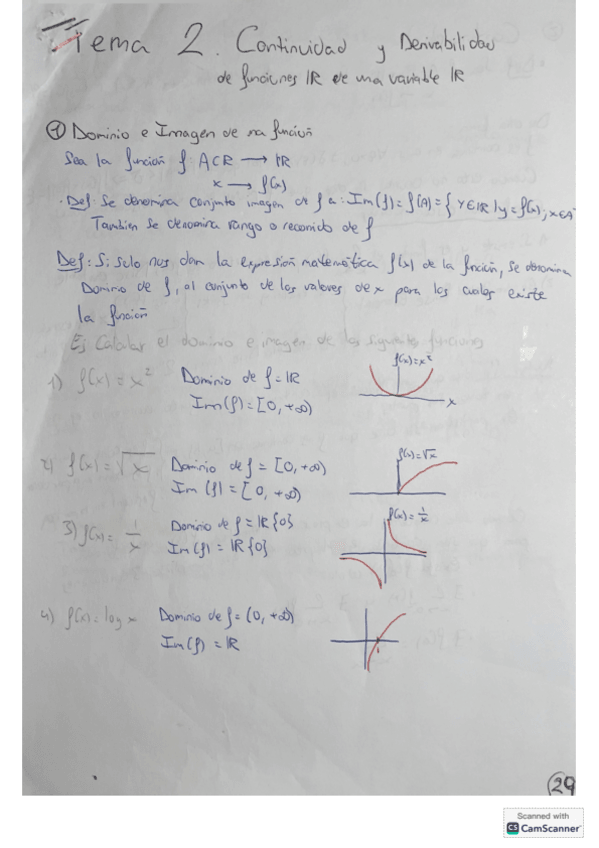 Tema 2. Continuidad y Derivabilidad
de funciones IR de una variable IR
① Dominio e Imagen de una función
Sea la función f ACR → IR
x → f(x)
· Def: Se denomina conjunto imagen de f a: Im(f) = f(A) = { Y∈IR / y = f(x), x∈A
Tambien se denomina rango o recorrido de f
Def: Si solo nos dan la expresión matemática f(x) de la función, se denomina
Dominio de f, al conjunto de los valores de x para los cuales existe
la función
Ej Calcular el dominio e imagen de las siguientes funciones
1) f(x) = x² Dominio de f = IR f(x)=x²
Im(f) = [0, +∞) x
2) f(x) = √x Dominio de f = [0, +∞) f(x)=√x
Im (f) = [0, +∞)
3) f(x) = 1/x Dominio de f = IR {0} f(x) = 1/x
Im(f) = IR {0}
4) f(x) = log x Dominio de f = (0, +∞)
Im(f) = IR 1
29
Scanned with
CS CamScanner